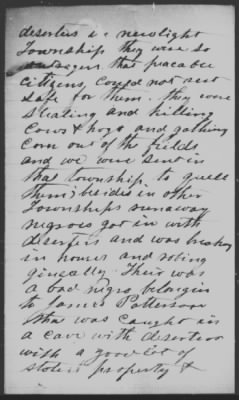 deserters in newlight
Township they were so
outragers that peacable
citizens, could not rest
safe for them. they were
stealing and killing
Cows & hogs and gathing
Corn out of the fields
and we were sent in
that township to quell
them; besides in other
Townships runaway
negroes got in with
deserters and was breaking
in houses and robing
ginerally. Their was
a bad negro belongin
to James Patterson
that was caught in
a cave with deserters
with a good lot of
stolen property &